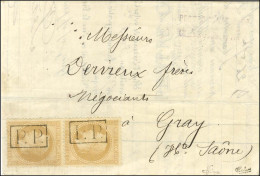 Messieurs
Dervieux frères
Négociants
à
Gray
(Hte Saône)
P.P. P.P.